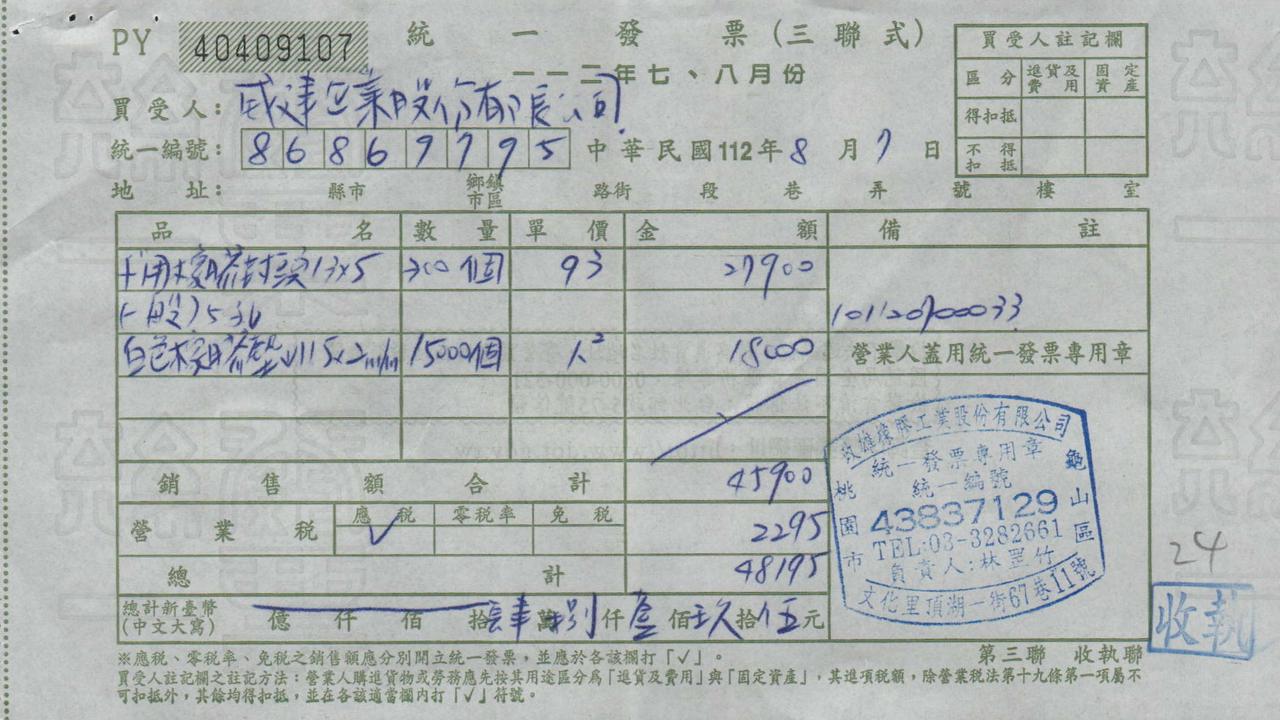 PY 40409107 統一發票(三聯式)
一一二年七、八月份
買受人註記欄
區分 進貨及費用 固定資產
得扣抵
不得扣抵
買受人: 股份有限公司
統一編號: 86869795 中華民國112年8月7日
地址: 縣市 鄉鎮市區 路街 段 巷 弄 號 樓 室
品名 數量 單價 金額 備註
用橡膠封頭13x5 300個 93 27900
(一般)536
白色橡膠墊 115x2m/m 15000個 1.2 18000
營業人蓋用統一發票專用章
銷售額合計 45900
營業稅 應稅 ✓ 零稅率 免稅 2295
總計 48195
總計新臺幣(中文大寫) 億 仟 佰 拾 肆 萬 捌 仟 壹 佰 玖 拾 伍 元
橡膠工業股份有限公司
統一發票專用章
統一編號
43837129
TEL:03-3282661
負責人:林罡竹
桃園市 龜山區
文化里頂湖一街67巷11號
24
收執
※應稅、零稅率、免稅之銷售額應分別開立統一發票,並應於各該欄打「✓」。
第三聯 收執聯
買受人註記欄之註記方法:營業人購進貨物或勞務應先按其用途區分為「進貨及費用」與「固定資產」,其進項稅額,除營業稅法第十九條第一項屬不
可扣抵外,其餘均得扣抵,並在各該適當欄內打「✓」符號。